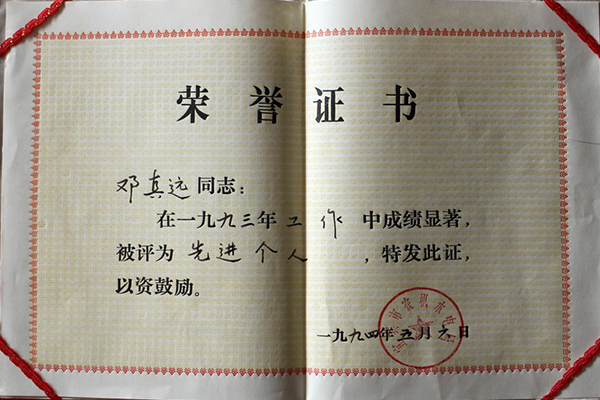 荣誉证书
邓真远同志：
在一九九三年工作中成绩显著，
被评为先进个人，特发此证，
以资鼓励。
一九九四年五月六日